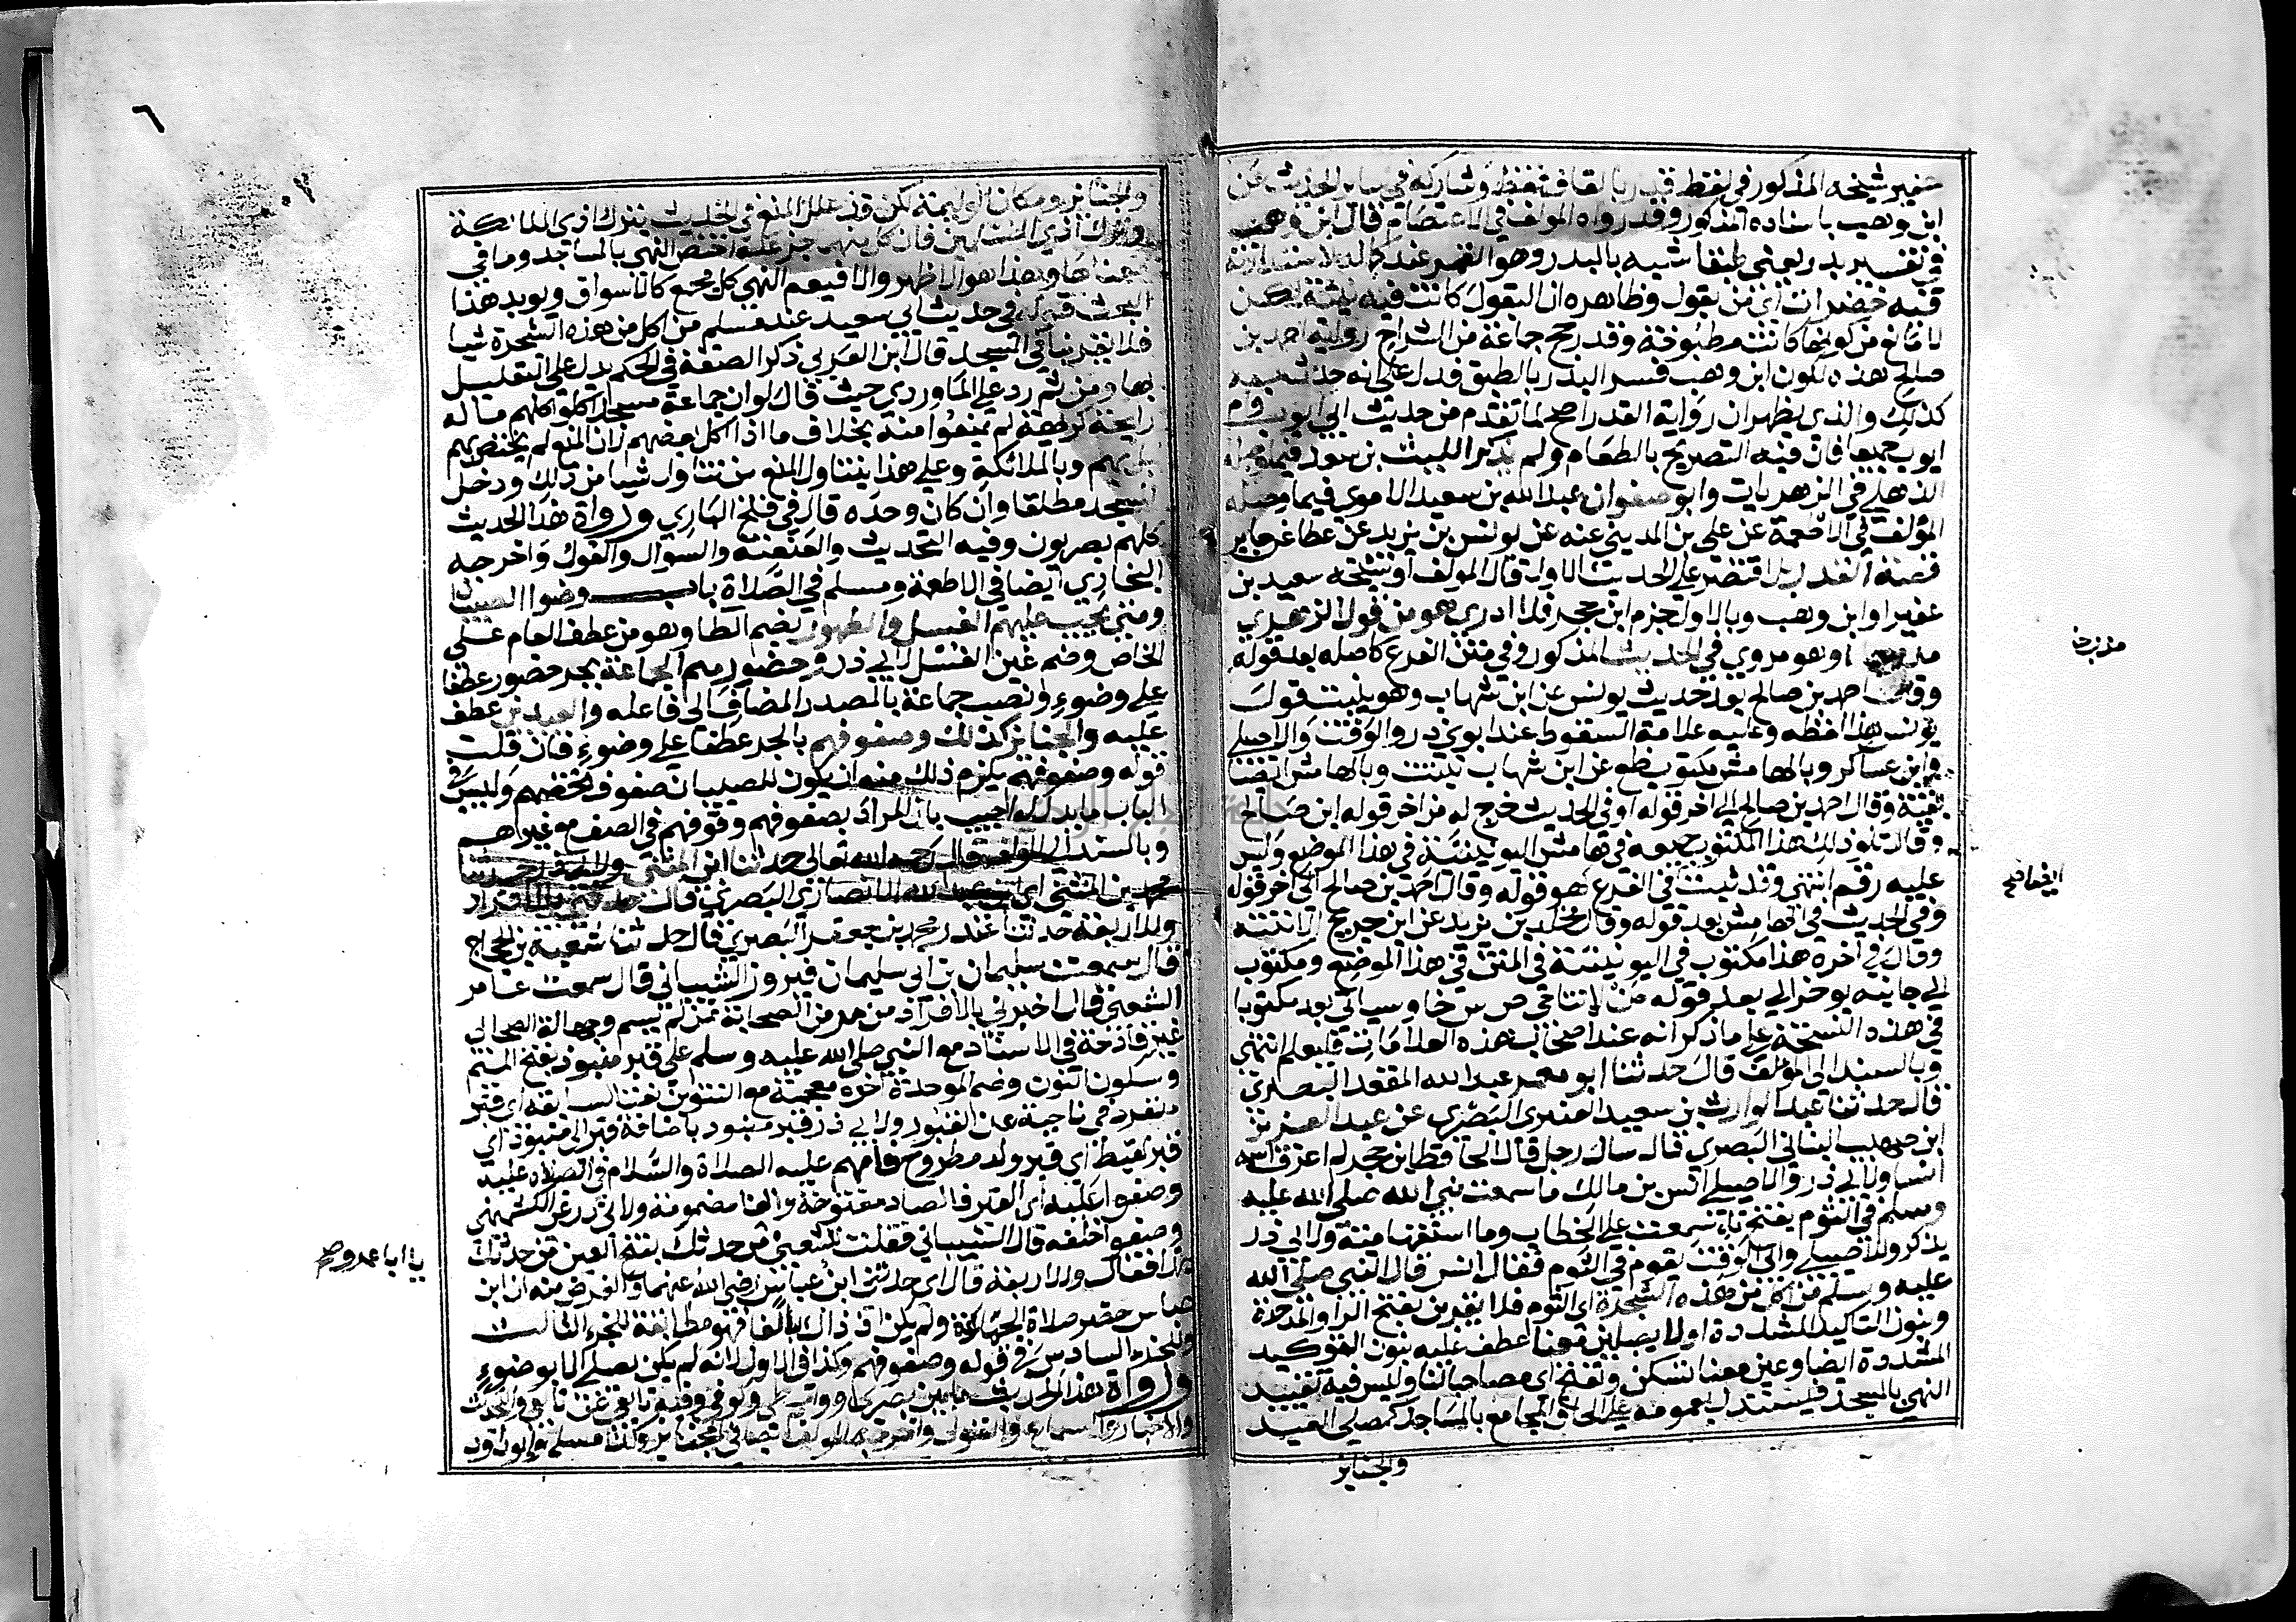 عفير شيخه المذكور في لفظ قدر بالقاف فقط وشاركه في ساير الحديث عن
ابن وهب باسناده المذكور وقد رواه المولف في الاعتصام قال ابن وهب
في تفسير بدر يعني طبقا شبه بالبدر وهو القمر عند كماله لاستدارته
فيه خضرات اي من بقول وظاهره ان البقول كانت فيه نيئة لكن
لا مانع من كونها كانت مطبوخة وقد رجح جماعة من الشراح رواية احمد بن
صالح هذه لكون ابن وهب فسر البدر بالطبق فدل على انه حدث به
كذلك والذي يظهر ان رواية القدر اصح لما تقدم من حديث ابي ايوب وام
ايوب جميعا فان فيه التصريح بالطعام ولم يذكر الليث بن سعد فيما وصله
الذهلي في الزهريات وابو صفوان عبد الله بن سعيد الاموي فيما وصله
المؤلف في الاطعمة عن علي بن المديني عنه عن يونس بن يزيد عن عطا عن جابر
قصة القدر بل اقتصر على الحديث الاول قال المولف او شيخه سعيد بن
عفير او ابن وهب وبالاول جزم ابن حجر فلا ادري هو من قول الزهري
مدرجا او هو مروي في الحديث المذكور وفي متن الفرع كاصله بعد قوله
وقال احمد بن صالح بعد حديث يونس عن ابن شهاب وهو يثبت قول
يونس هذا لفظه وعليه علامة السقوط عند ابوي ذر والوقت والاصيلي
وابن عساكر وبالهامش مكتوب عن ابن شهاب يثبت وبالهامش ايضا
بقية وقال احمد بن صالح الى اخر قوله او في الحديث خرج له من اخر قوله ابن صالح
وقال تلو ذلك هذا المكتوب جميعه في هامش اليونينية في هذا الموضع وليس
عليه رقم انتهى وقد ثبت في الفرع كهو قوله وقال احمد بن صالح الى اخر قوله
وفي الحديث في الهامش بعد قوله وقال مخلد بن يزيد عن ابن جريج الا نتنه
وقال في اخره هذا مكتوب في اليونينية في المتن في هذا الموضع ومكتوب
الى جانبه يوخر الى بعد قوله من لا تناجي ص س خا وسياتي بعد مكتوبا
في هذه النسخة على ما ذكر انه عند اصحاب هذه العلامات فليعلم انتهى
وبالسند الى المؤلف قال حدثنا ابو معمر عبد الله المقعد البصري
قال حدثنا عبد الوارث بن سعيد العنبري البصري عن عبد العزيز
ابن صهيب البناني البصري قال سال رجل قال الحافظ ابن حجر لم اعرف اسمه
انسا ولابي ذر والاصيلي انس بن مالك ما سمعت نبي الله صلى الله عليه
وسلم في الثوم بفتح تا سمعت على الخطاب وما استفهامية ولابي ذر
يذكر وللاصيلي وابي الوقت يقوم في الثوم فقال انس قال النبي صلى الله
عليه وسلم من اكل من هذه الشجرة اي الثوم فلا يقربن بفتح الرا والموحدة
وبنون التاكيد المشددة او لا يصلين معنا عطف عليه بنون التوكيد
المشددة ايضا وعين معنا تسكن وتفتح اي مصاحبا لنا وليس فيه تقييد
النهي بالمسجد فيستدل بعمومه على الحاق المجامع بالمساجد كمصلى العيد
والجنايز
مدرجا
ايضا صح
٦
والجنايز ومكان الوليمة لكن قد علل المنع في الحديث بترك اذي الملائكة
وترك اذي المسلمين فان كل منهما جزء علة اختص النهي بالمساجد وما في
معناها وهذا هو الاظهر والا فيعم النهي كل مجمع كالاسواق ويويد هذا
البحث قوله في حديث ابي سعيد عند مسلم من اكل من هذه الشجرة شيا
فلا يقربنا في المسجد قال ابن العربي ذكر الصفة في الحكم يدل على التعليل
بها ومن ثم رد على الماوردي حيث قال لو ان جماعة مسجد اكلوا كلهم ما له
رايحة كريهة لم يمنعوا منه بخلاف ما اذا اكل بعضهم لان المنع لم يختص بهم
بل بهم وبالملائكة وعلى هذا يتناول المنع من تناول شيا من ذلك ودخل
المسجد مطلقا وان كان وحده قال في فتح الباري ورواة هذا الحديث
كلهم بصريون وفيه التحديث والعنعنة والسؤال والقول واخرجه
البخاري ايضا في الاطعمة ومسلم في الصلاة باب وضوا الصبيان
ومتى يجب عليهم الغسل والطهور بضم الطا وهو من عطف العام على
الخاص وضم غين الغسل لابي ذر وحضورهم الجماعة بجر حضور عطفا
على وضوء ونصب جماعة بالمصدر المضاف الى فاعله والعيدين عطف
عليه والجنايز كذلك وصفوفهم بالجر عطفا على وضوء فان قلت
قوله وصفوفهم يلزم ذلك منه ان يكون للصبيان صفوف تخصهم وليس في
الباب ما يدل له اجيب بان المراد بصفوفهم وقوفهم في الصف مع غيرهم
وبالسند الى المولف قال رحمه الله تعالى حدثنا ابن المثنى ولابي ذر حدثنا
محمد بن المثنى اي ابن عبد الله الانصاري البصري قال حدثني بالافراد
وللاربعة حدثنا غندر محمد بن جعفر البصري قال حدثنا شعبة بن الحجاج
قال سمعت سليمان بن ابي سليمان فيروز الشيباني قال سمعت عامر
الشعبي قال اخبرني بالافراد من مر من الصحابة ممن لم يسم وجهالة الصحابي
غير قادحة في الاسناد مع النبي صلى الله عليه وسلم على قبر منبوذ بفتح الميم
وسكون النون وضم الموحدة اخره معجمة مع التنوين نعتا لسابقه اي قبر
منفرد في ناحية عن القبور ولابي ذر قبر منبوذ باضافة قبر الى منبوذ اي
قبر لقيط اي قبر ولد مطروح فامهم عليه الصلاة والسلام في الصلاة عليه
وصفوا عليه اي القبر فالصاد مفتوحة والفا مضمومة ولابي ذر عن الكشميهني
وصفوا خلفه قال الشيباني فقلت للشعبي من حدثك بفتح العين من حدثك
بهذا فقال وللاربعة قال اي حدثني ابن عباس رضي الله عنهما والغرض منه ان ابن
عباس حضر صلاة الجماعة ولم يكن اذ ذاك بالغا فهو مطابقة للجزء الثالث
وللجزء السادس في قوله وصفوفهم وكذا في الاول لانه لم يكن يصلي الا بوضوء
ورواة هذا الحديث ما بين بصري وواسطي وكوفي وفيه تابعي عن تابعي والتحديث
والاخبار والسماع والقول واخرجه المولف ايضا في الجنايز وكذا مسلم وابو داود
يا ابا عمرو صح